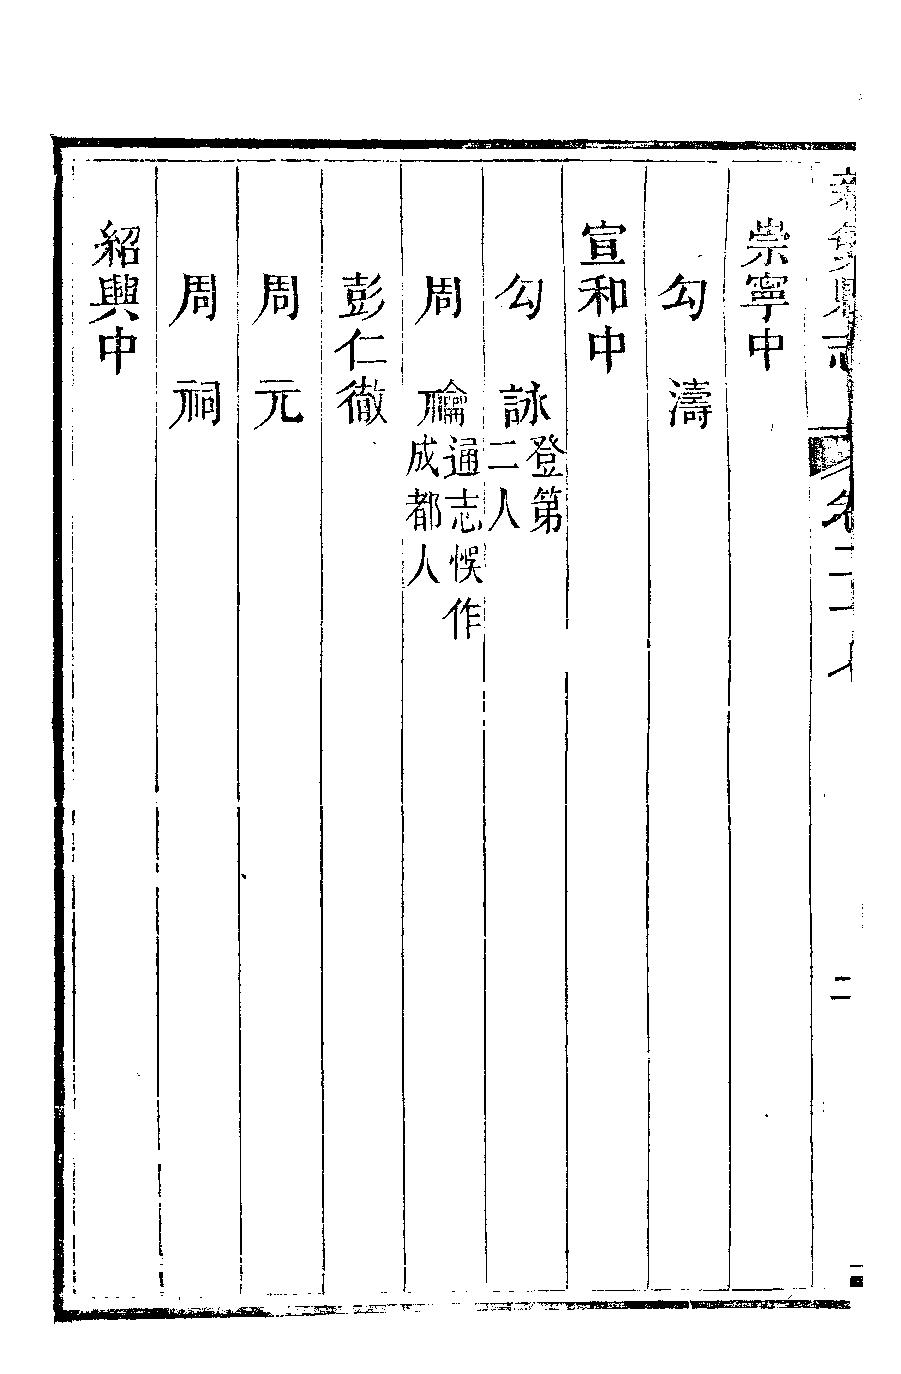 新繁縣志
卷二十
二
崇寧中
勾濤
宣和中
勾詠 登第二人
周禴 通志悞作成都人
彭仁徹
周元
周祠
紹興中